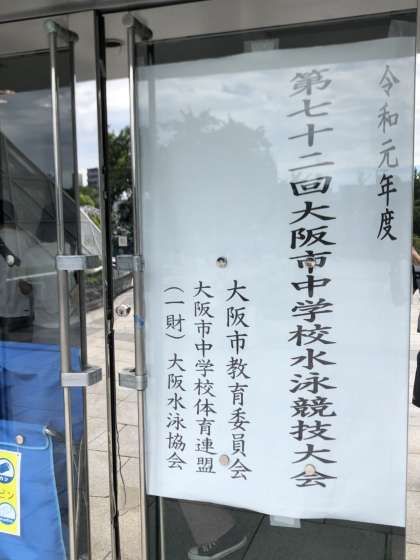 令和元年度
第七十二回大阪市中学校水泳競技大会
大阪市教育委員会
大阪市中学校体育連盟
（一財）大阪水泳協会